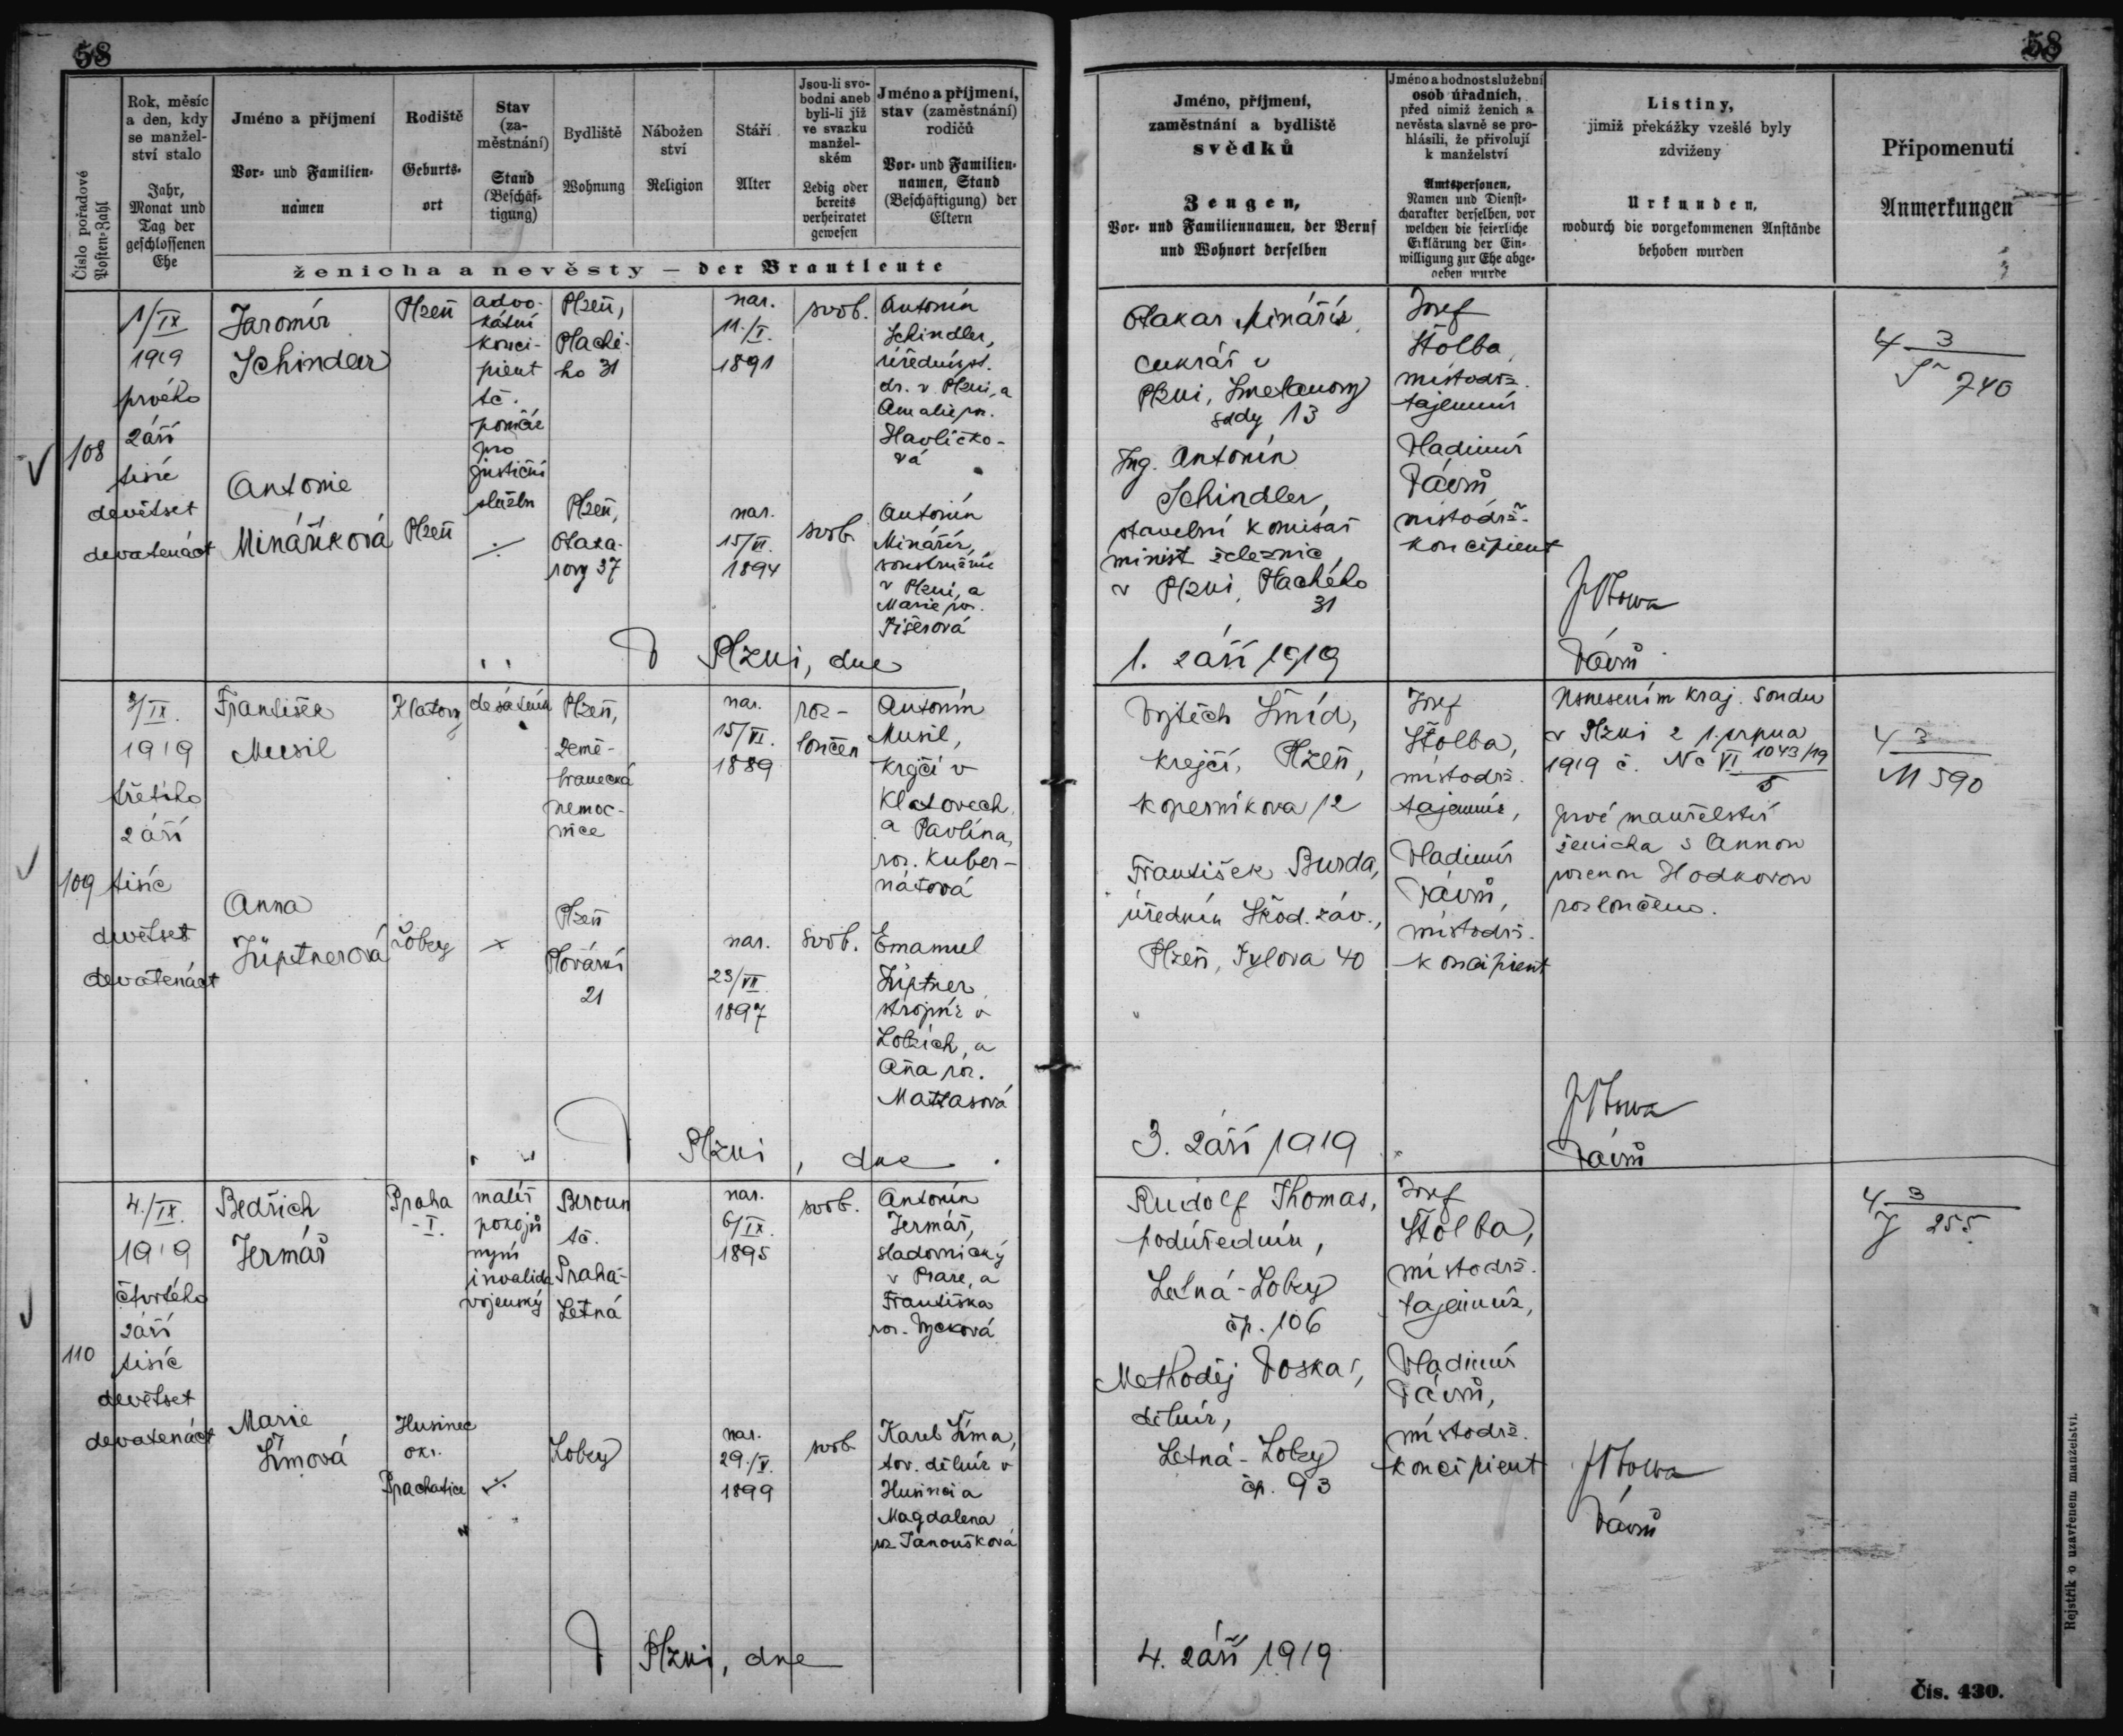 58
58
Číslo pořadové
Posten-Zahl
Rok, měsíc
a den, kdy
se manžel-
ství stalo
Jahr,
Monat und
Tag der
geschlossenen
Ehe
Jméno a příjmení
Vor- und Familien-
namen
Rodiště
Geburts-
ort
Stav
(za-
městnání)
Stand
(Beschäf-
tigung)
Bydliště
Wohnung
Nábožen
ství
Religion
Stáří
Alter
Jsou-li svo-
bodni aneb
byli-li již
ve svazku
manžel-
ském
Ledig oder
bereits
verheiratet
gewesen
Jméno a příjmení,
stav (zaměstnání)
rodičů
Vor- und Familien-
namen, Stand
(Beschäftigung) der
Eltern
ženicha a nevěsty — der Brautleute
Jméno, příjmení,
zaměstnání a bydliště
svědků
Zeugen,
Vor- und Familiennamen, der Beruf
und Wohnort derselben
Jméno a hodnost služební
osob úřadních,
před nimiž ženich a
nevěsta slavně se pro-
hlásili, že přivolují
k manželství
Amtspersonen,
Namen und Dienst-
charakter derselben, vor
welchen die feierliche
Erklärung der Ein-
willigung zur Ehe abge-
geben wurde
Listiny,
jimiž překážky vzešlé byly
zdviženy
Urkunden,
wodurch die vorgekommenen Anstände
behoben wurden
Připomenutí
Anmerkungen
108
1/IX
1919
prvého
září
tisíc
devětset
devatenáct
Jaromír
Schindler
Plzeň
advo-
kátní
konci-
pient
tč.
pro
justiční
službu
Plzeň,
Plachého 31
nar.
11./I.
1891
svob.
Antonín
Schindler,
úředník st.
dr. v Plzni, a
Amalie roz.
Havlíčko-
vá
Antonie
Minaříková
Plzeň
Plzeň,
Otaka-
rovy 37
nar.
15/VI.
1894
svob.
Antonín
Minařík,
v Plzni, a
Marie roz.
Fišerová
V Plzni, dne
Otakar Minařík
cukrář v
Plzni, Smetanovy
sady 13
Ing. Antonín
Schindler,
stavební komisař
minist. železnic,
v Plzni, Plachého
31
1. září 1919
Josef
Štolba
místodrž.
tajemník
Vladimír
místodrž.
koncipient
4 3
740
109
3/IX.
1919
třetího
září
tisíc
devětset
devatenáct
František
Musil
Klatovy
desátník
Plzeň,
Země-
branecká
nemoc-
nice
nar.
15/VI.
1889
roz-
loučen
Antonín
Musil,
krejčí v
Klatovech
a Pavlína,
roz. Kuber-
nátová
Anna
Jüptnerová
Lobzy
Plzeň
Plovární
21
nar.
23/VII
1897
svob.
Emanuel
Jüptner
strojník v
Lobzích, a
Anna roz.
Mattasová
V Plzni, dne
Vojtěch Šmíd,
krejčí, Plzeň,
Koperníkova 12
František Burda,
úředník Škod. záv.,
Plzeň, Tylova 40
3. září 1919
Josef
Štolba,
místodrž.
tajemník,
Vladimír
místodrž.
koncipient
Usnesením kraj. soudu
v Plzni z 1. srpna
1919 č. Nc VI 1043/19
prvé manželství
ženicha s Annou
rozenou Hodkovou
rozloučeno.
4 3
M 590
110
4./IX.
1919
čtvrtého
září
tisíc
devětset
devatenáct
Bedřich
Jermář
Praha
-I.
malíř
pokojů
nyní
invalida
vojenský
Beroun
tč.
Praha-
Letná
nar.
6/IX.
1895
svob.
Antonín
Jermář,
sladovnický
v Praze, a
Františka
Marie
Šímová
Husinec
okr.
Prachatice
Lobzy
nar.
29./V.
1899
svob.
Karel Šíma,
tov. dělník v
Husinci a
Magdalena
roz. Janoušková
V Plzni, dne
Rudolf Thomas,
podúředník,
Letná-Lobzy
čp. 106
Methoděj Voska,
dělník,
Letná-Lobzy
čp. 93
4. září 1919
Josef
Štolba,
místodrž.
tajemník,
Vladimír
místodrž.
koncipient
4 3
J 255
Rejstřík o uzavřeném manželství.
Čís. 430.